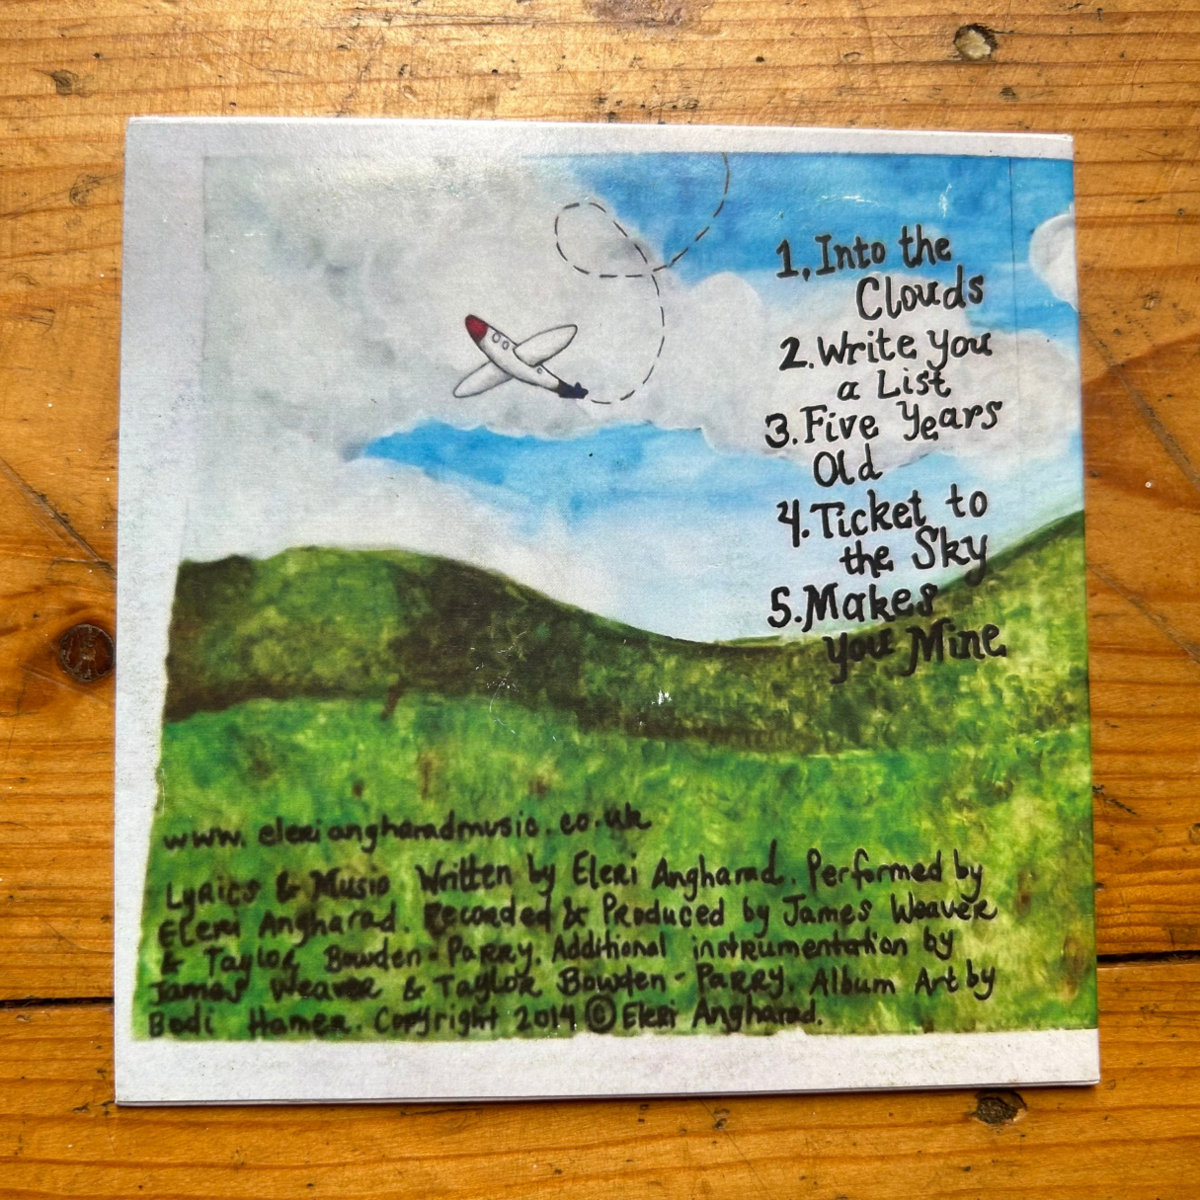 1. Into the
Clouds
2. Write you
a List
3. Five Years
Old
4. Ticket to
the Sky
5. Makes
you Mine
www.eleriangharadmusic.co.uk
Lyrics & Music Written by Eleri Angharad. Performed by
Eleri Angharad. Recorded & Produced by James Weaver
& Taylor Bowden-Parry. Additional instrumentation by
James Weaver & Taylor Bowden-Parry. Album Art by
Bodi Hamer. Copyright 2014 © Eleri Angharad.